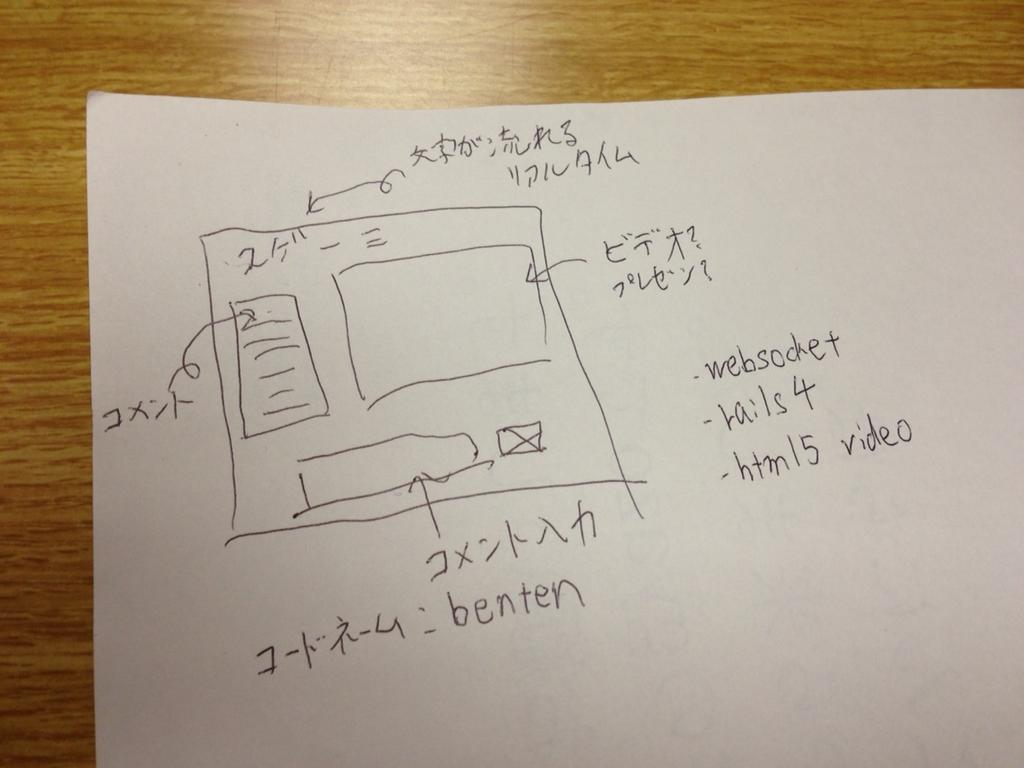 文字が流れる
リアルタイム
スゲーミ
ビデオ?
プレゼン?
コメント
- websocket
- rails4
- html5 video
コメント入力
コードネーム: benten